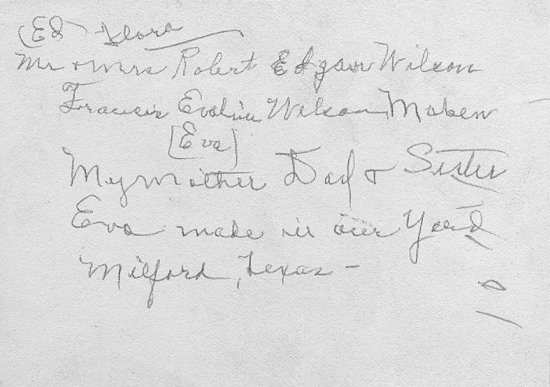 (Ed) Flora
Mr + Mrs Robert Edgar Wilson
Francis Evaline Wilson Maben
[Eva]
My Mother Dad + Sister
Eva made in our Yard
Milford, Texas -